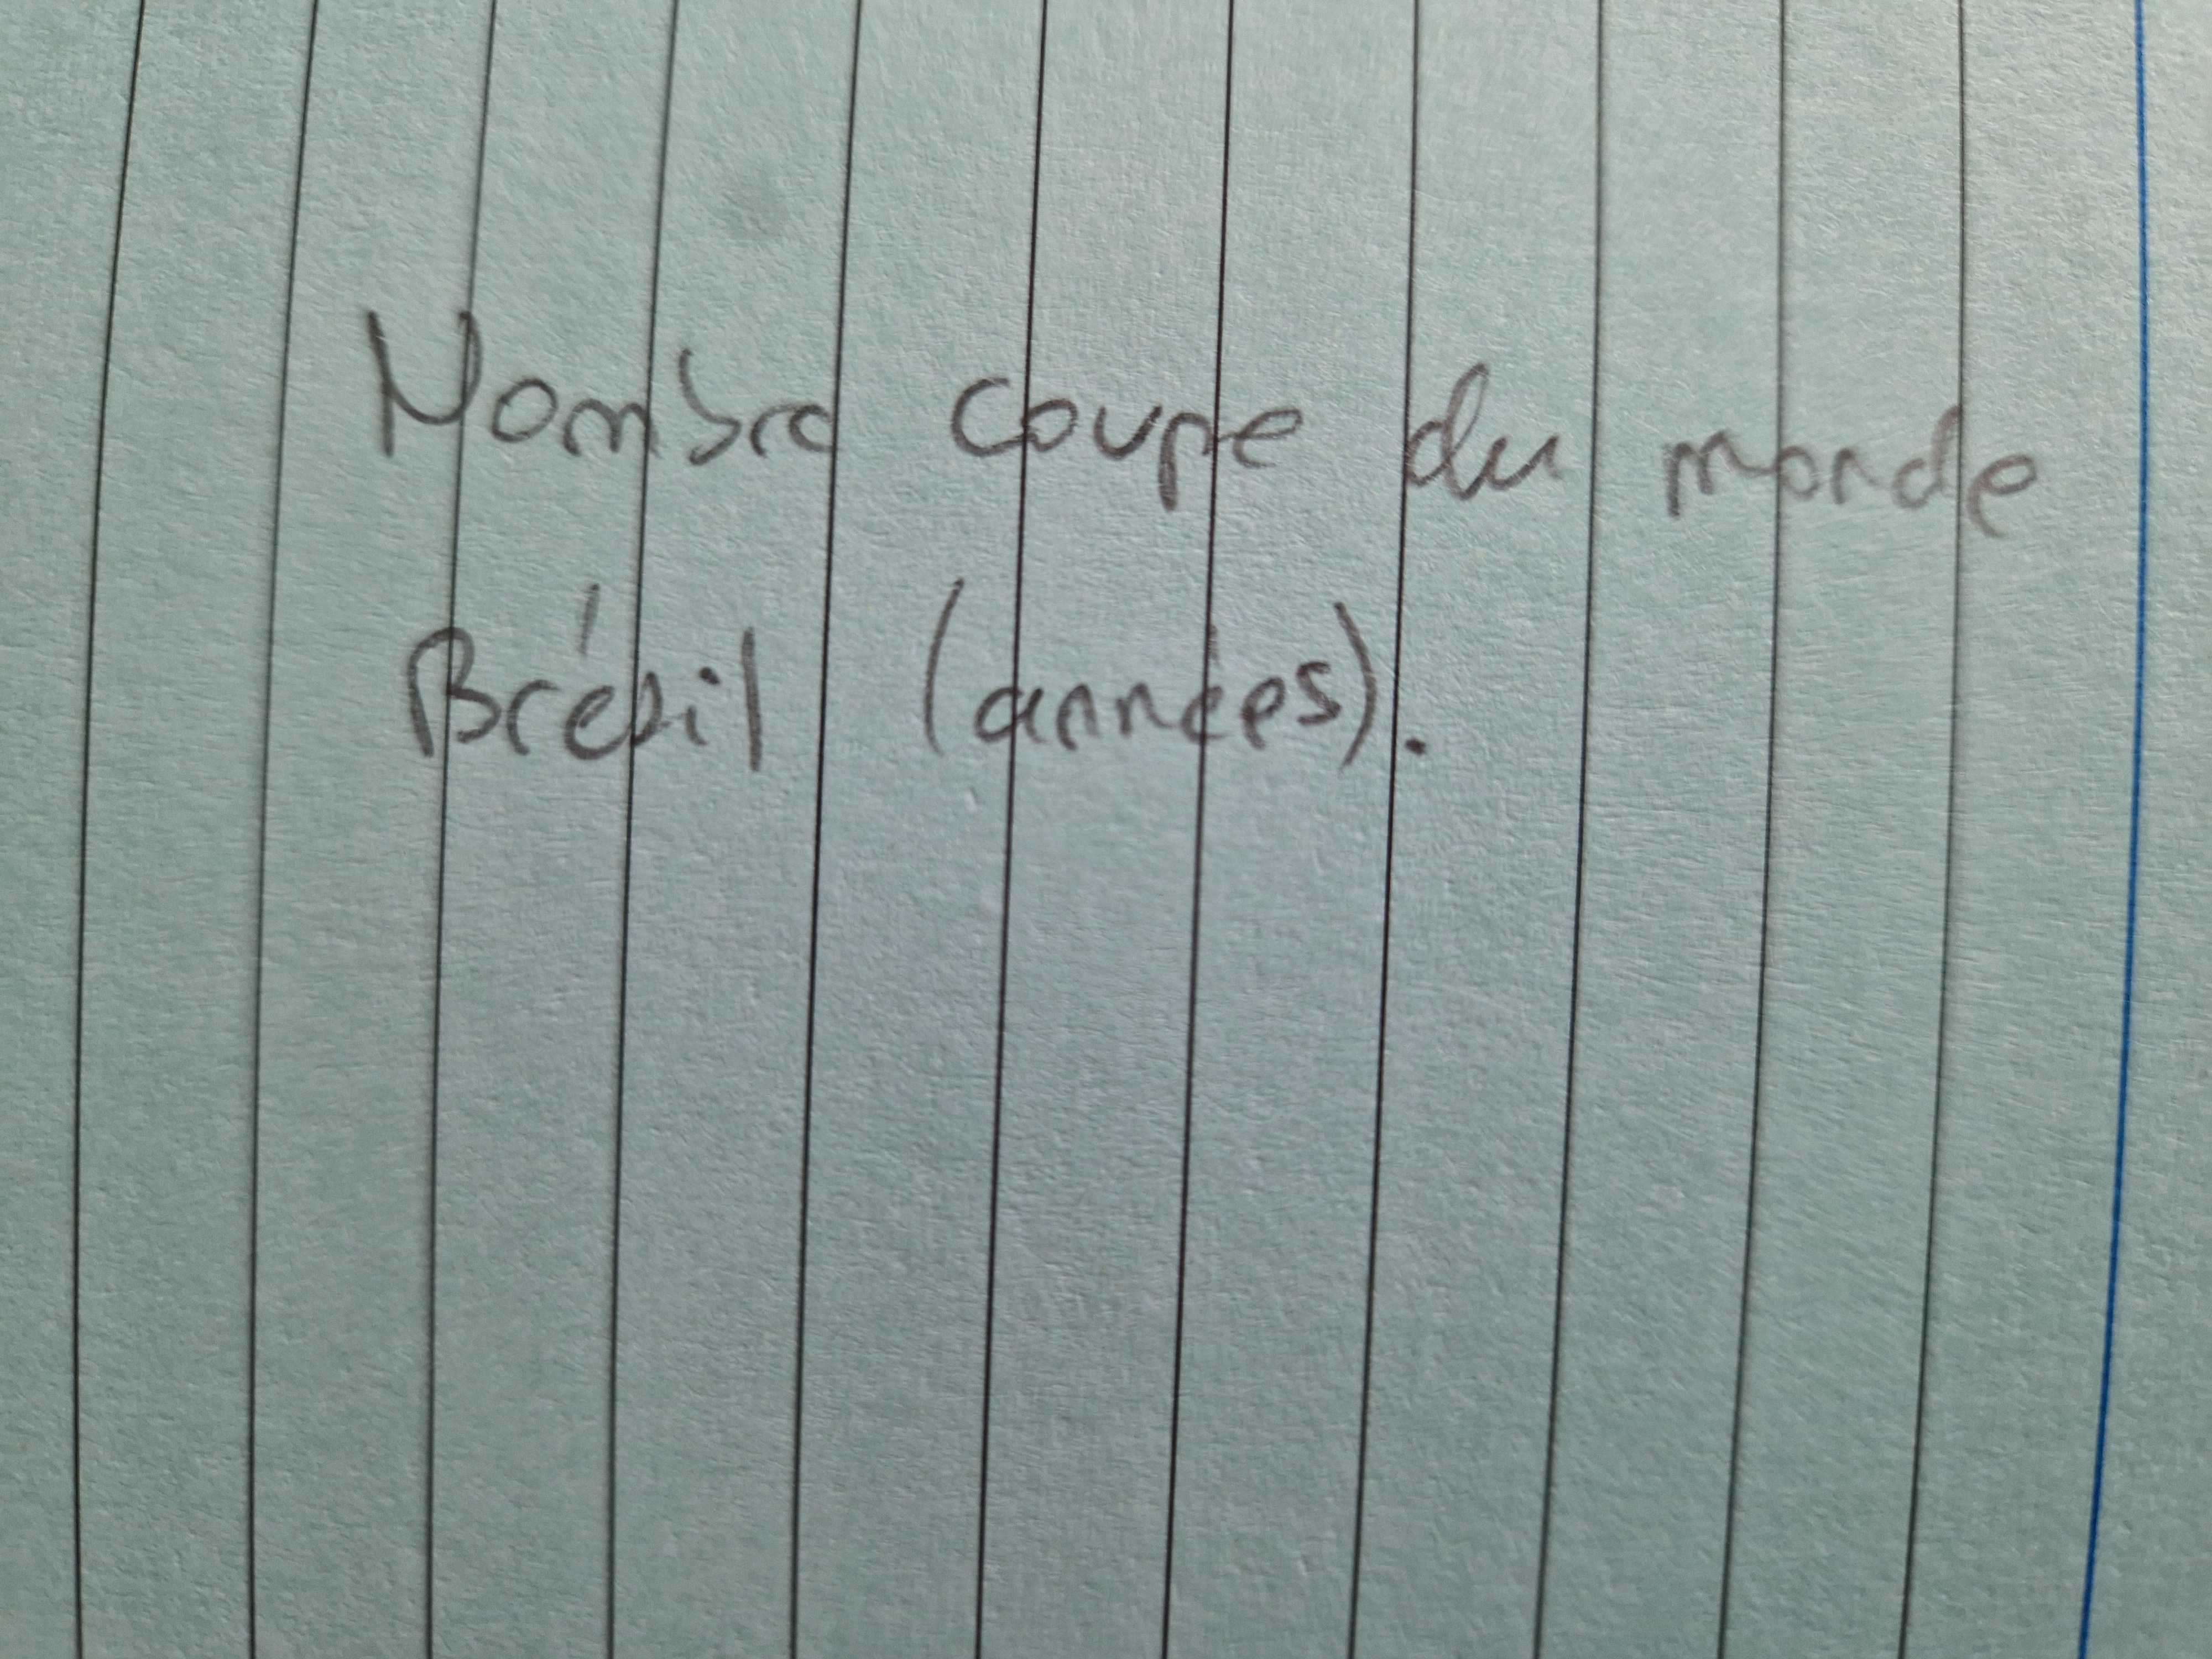 Nombre coupe du monde
Brésil (années).